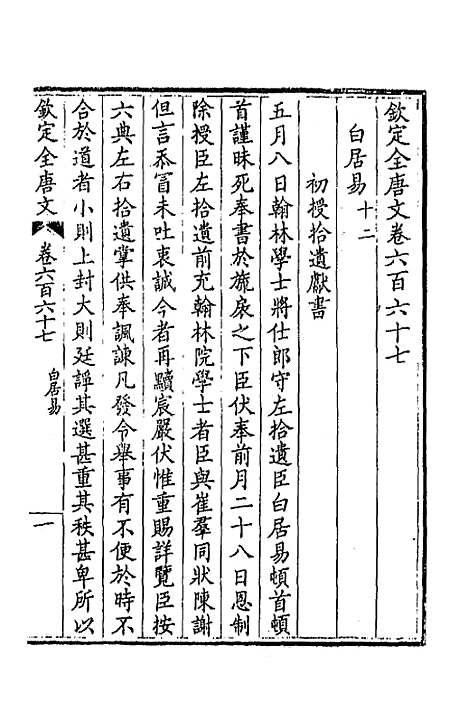 欽定全唐文卷六百六十七
白居易十二
初授拾遺獻書
五月八日翰林學士將仕郎守左拾遺臣白居易頓首頓
首謹昧死奉書於旒扆之下臣伏奉前月二十八日恩制
除授臣左拾遺前充翰林院學士者臣與崔羣同狀陳謝
但言忝冒未吐衷誠今者再黷宸嚴伏惟重賜詳覽臣按
六典左右拾遺掌供奉諷諫凡發令舉事有不便於時不
合於道者小則上封大則廷諍其選甚重其秩甚卑所以
欽定全唐文
卷六百六十七
白居易
一